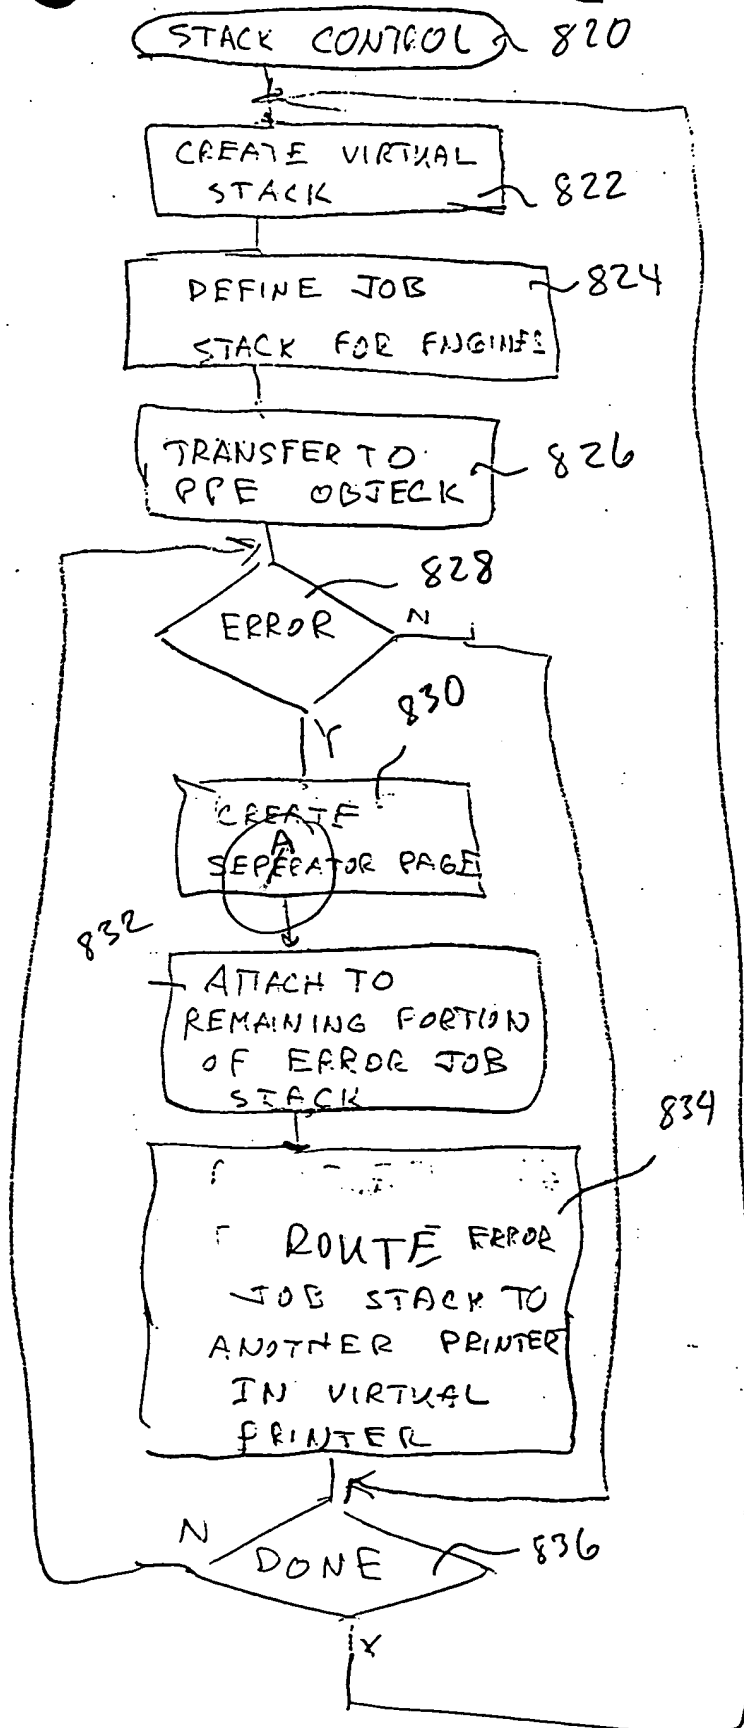 STACK CONTROL 820
CREATE VIRTUAL
STACK 822
DEFINE JOB 824
STACK FOR ENGINES
TRANSFER TO 826
PPE OBJECK
828
ERROR N
Y 830
CREATE
A
SEPERATOR PAGE
832
ATTACH TO
REMAINING PORTION
OF ERROR JOB
STACK
834
ROUTE ERROR
JOB STACK TO
ANOTHER PRINTER
IN VIRTUAL
PRINTER
N
DONE 836
Y